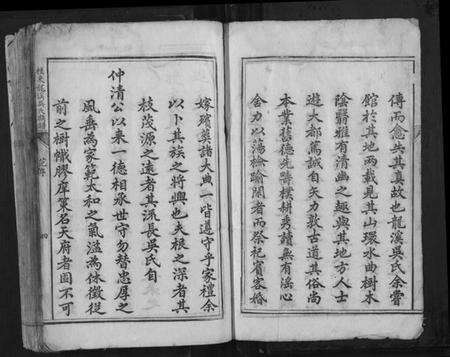 傳而愈失其真故也龍溪吳氏余嘗
館於其地兩載見其山環水曲樹木
陰翳雅有清幽之趣與其地方人士
遊大都篤誠自矢力敦古道其俗尚
本業舊德先疇樸耕秀讀無有滛心
舍力以蕩檢踰閑者而祭祀賓客婚
嫁殯葬諸大典一皆遵守乎家禮余
以卜其族之將興也夫根之深者其
枝茂源之遠者其流長吳氏自
仲清公以來一德相承世守勿替忠厚之
風垂為家範太和之氣溢為休徵從
前之樹幟膠庠蜚名天府者固不可